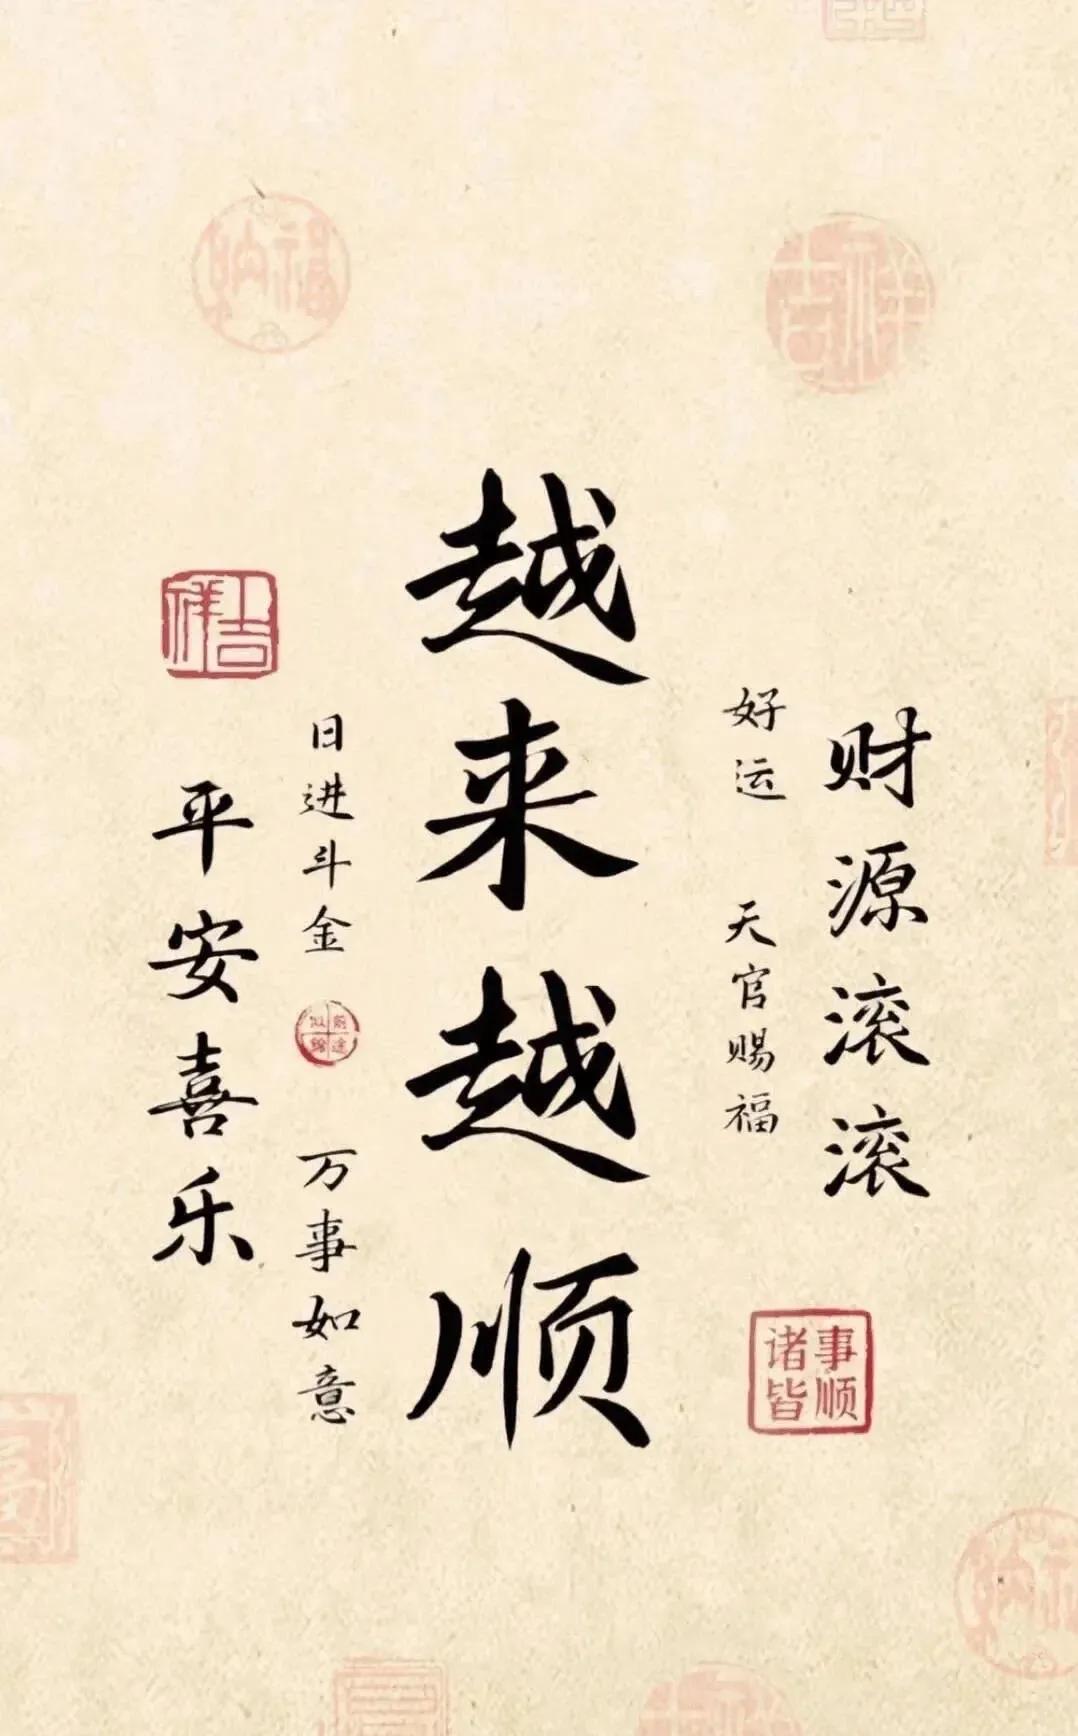 财源滚滚
好运 天官赐福
事顺
诸皆
越来越顺
日进斗金
前途
似锦
万事如意
上吉
祥
平安喜乐
纳福
吉祥